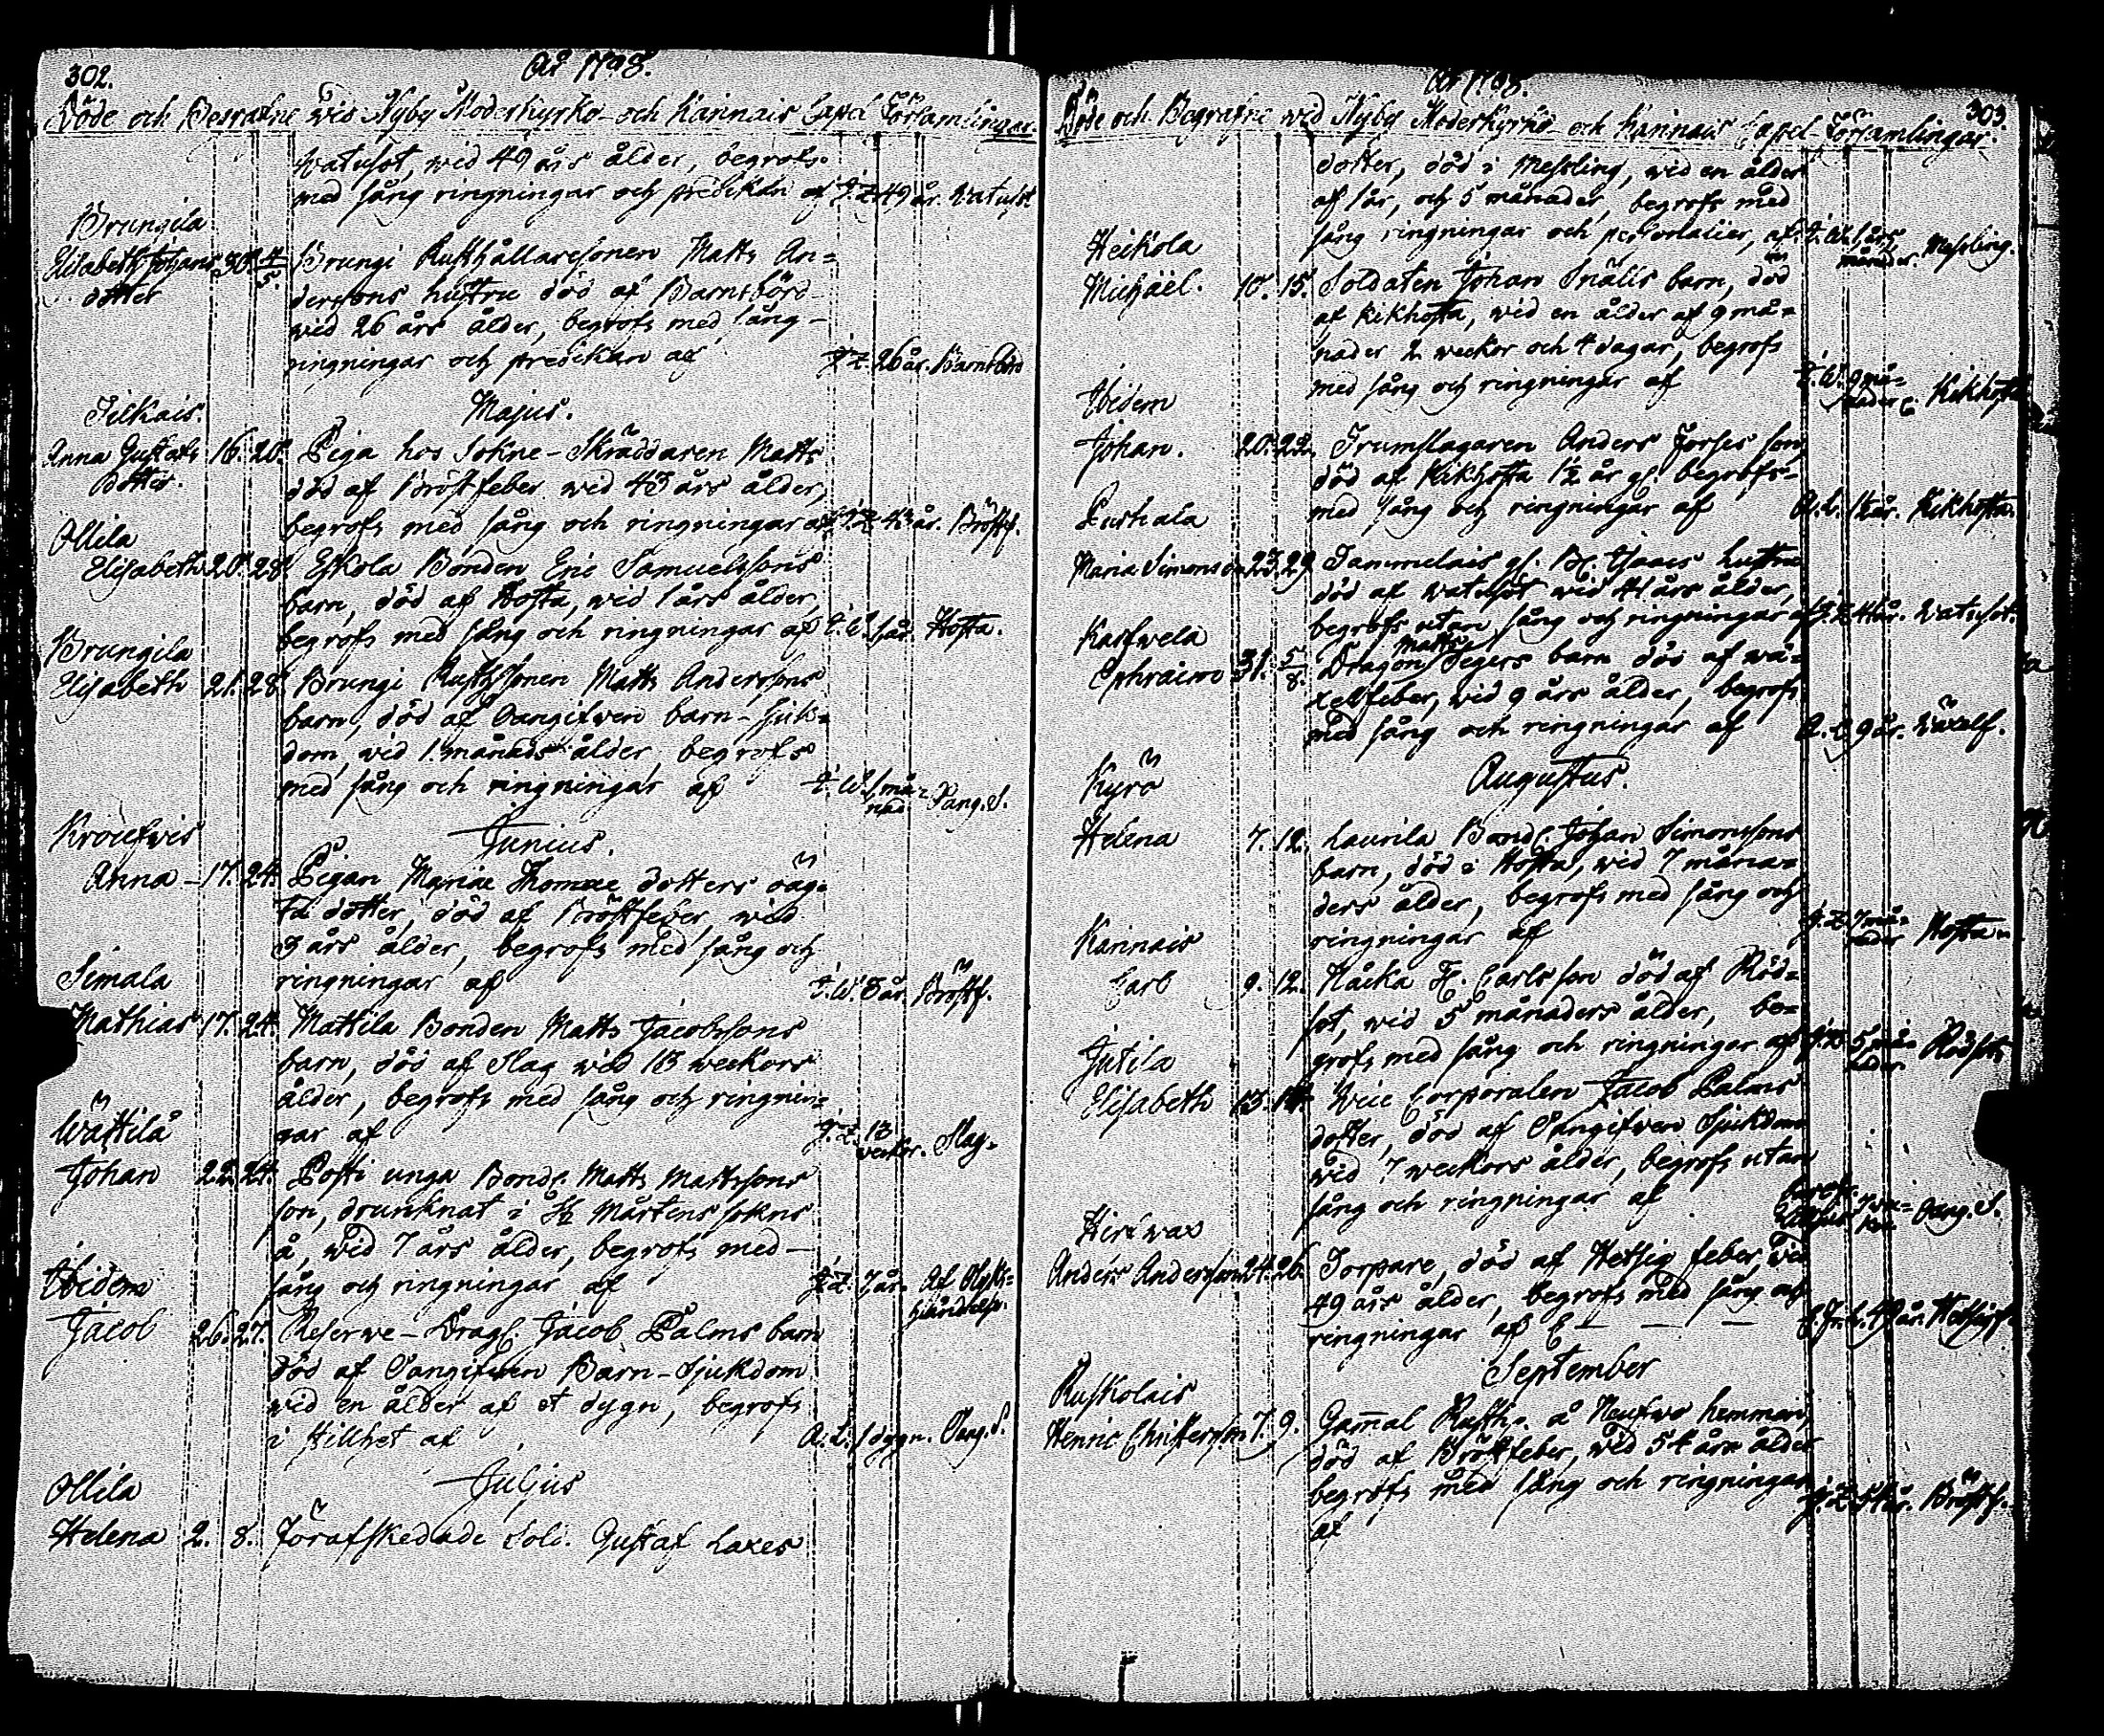 302.
År 1798.
Döde och Begrafne wid Nyby Moderkyrko- och Karinais Capel Församlingar.
Watusot, wid 49 års ålder, begrofs
med sång ringningar och predikan af J.Z. 49 år. Watusot
Brungila
Elisabeth Johans 30. 4/5. Brungi Rusthållaresonen Matts An=
dotter
dersons hustru död af Barnsbörd
wid 26 års ålder, begrofs med sång-
ringningar och predikan af J.Z. 26 år. Barnsbörd
Majus.
Jilkais.
Anna Gustafs 16. 20. Piga hos Sokne-Skräddaren Matts
Dotter.
död af Bröstfeber wid 43 års ålder,
begrofs med sång och ringningar af J.Z. 43 år. Bröstf.
Ollila
Elisabeth 20. 28. Eskola Bonden Eric Samuelssons
barn, död af Hosta, wid 1 års ålder,
begrofs med sång och ringningar af 1 år. Hosta.
Brungila
Elisabeth 21. 28. Brungi Rusthssonen Matts Anderssons
barn, död af Oangifwen barn-sjuk=
dom, wid 1. månads ålder, begrofs
med sång och ringningar af I.W. 1 må=
nad Oang. S.
Junius.
Krouswis
Anna - 17. 24. Pigan Mariae Thomae dotters oäg=
ta dotter, död af Bröstfeber, wid
3 års ålder, begrofs med sång och
ringningar af I.W. 3 år. Bröstf.
Simala
Mathias 17. 24. Mattila Bonden Matts Jacobssons
barn, död af Slag wid 13 weckors
ålder, begrofs med sång och ringnin=
gar af J.Z. 13
weckor. Slag.
Wättilä
Johan 22. 24. Posti unga Bond. Matts Mattssons
son, drunknat i St Mårtens sokns
å, wid 7 års ålder, begrofs med-
sång och ringningar af J.Z. 7 år. Af Olycks=
händelse.
Ibidem
Jacob 26. 27. Reserwe-Drag. Jacob Palms barn
död af Oangifwen Barn-Sjukdom
wid en ålder af et dygn, begrofs
i stillhet af A.L. 1 dygn. Oang. S.
Julius
Ollila
Helena 2. 8. Förafskedade Sold. Gustaf Laxes
303.
År 1798.
Döde och Begrafne wid Nyby Moderkyrko- och Karinais Capel-Församlingar.
dotter, död i Messling, wid en ålder
af 1 år, och 5 månader, begrofs med
sång ringningar och personalier, af I.W. 1 års
månader. Messling.
Heickola
Michaël. 10. 15. Soldaten Johan Snälls barn, död
af Kikhosta, wid en ålder af 9 må=
nader 2 weckor och 4 dagar, begrofs
med sång och ringningar af I.W. 9 må=
nader Kikhosta
Ibidem
Johan. 20. 22. Trumslagaren Anders Forsus son
död af Kikhosta 1½ år gl. begrofs-
med sång och ringningar af A.L. 1½ år. Kikhosta.
Maria Simons dr 23. 29. Tammelais gl. B. Isaacs hustru
död af watusot wid 44 års ålder,
begrofs utan sång och ringningar af J.Z. 44 år. Watusot.
Karfwela
Ephraim 31. 5/8. Dragon Matts Segers barn död af wä=
xelfeber, wid 9 års ålder, begrofs
med sång och ringningar af A.L. 9 år. Wäxelf.
Augustus.
Kyrö
Helena 7. 12. Laurila Bond. Johan Simonssons
barn, död i Hosta, wid 7 måna=
ders ålder, begrofs med sång och
ringningar af J.Z. 7 må=
nader Hosta
Karinais
Carl 9. 12. Carlsson död af Röd=
sot, wid 5 månaders ålder, be=
grofs med sång och ringningar af 5 må=
nader. Rödsot
Jutila
Elisabeth 13. Vice Corporalen Jacob Palms
dotter, död af Oangifwen Sjukdom
wid 7 weckors ålder, begrofs utan
sång och ringningar af Oang. S.
Hirfwas
Anders Andersson 24. 26. Torpare, död af Hetsig feber, wid
49 års ålder, begrofs med sång och
ringningar af C — — — 49 år. Hetsigf.
September
Ruskolais
Henric Christersson 7. 9. Gammal Rusth. å hemman,
död af Bröstfeber, wid 54 års ålder
begrofs med sång och ringningar
af J.Z. 54 år. Bröstf.